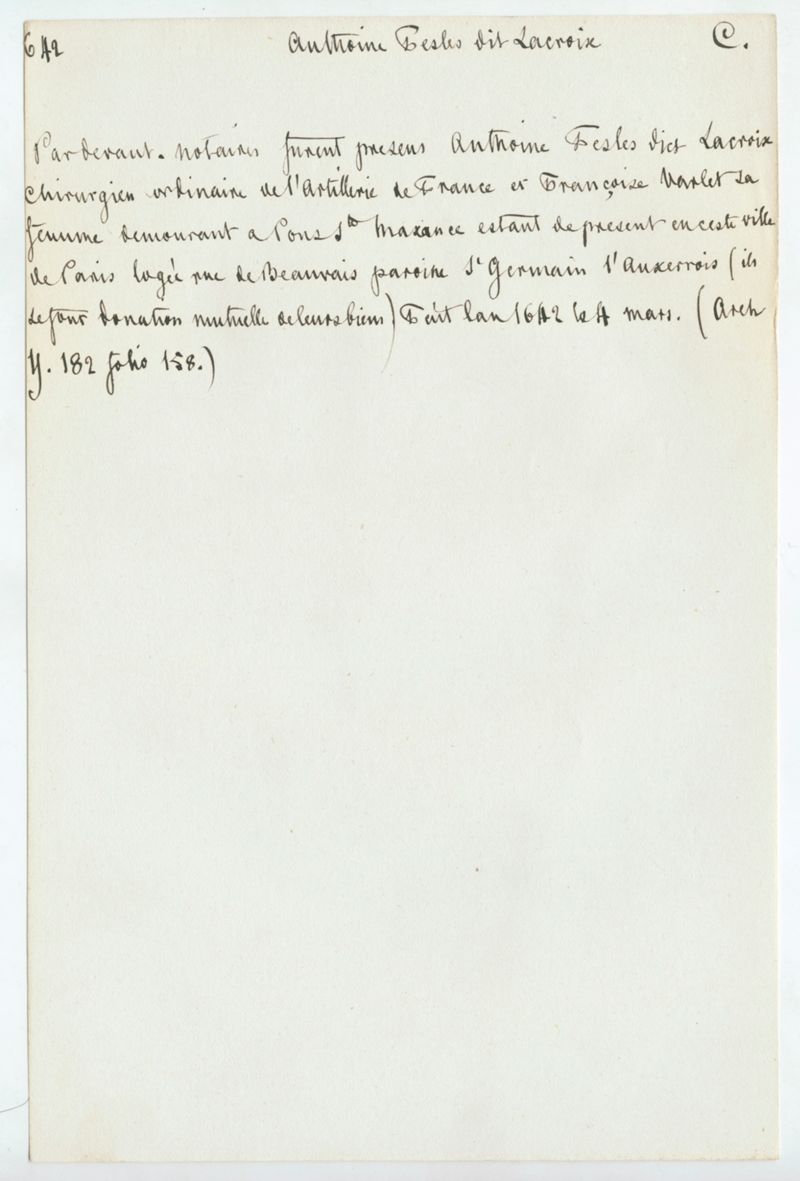 642 Anthoine Fesles dit Lacroix C.
Pardevant. notaires furent presens Anthoine Fesles dict Lacroix
chirurgien ordinaire de l'Artillerie de France et Françoise Varlet sa
femme demourant a Pons Ste Maxance estant de present en ceste ville
de Paris logée rue de Beauvais paroisse St Germain l'Auxerrois (ils
se font donation mutuelle de leurs biens) Feit lan 1642 le 4 mars. (Arch
Y. 182 folio 158.)